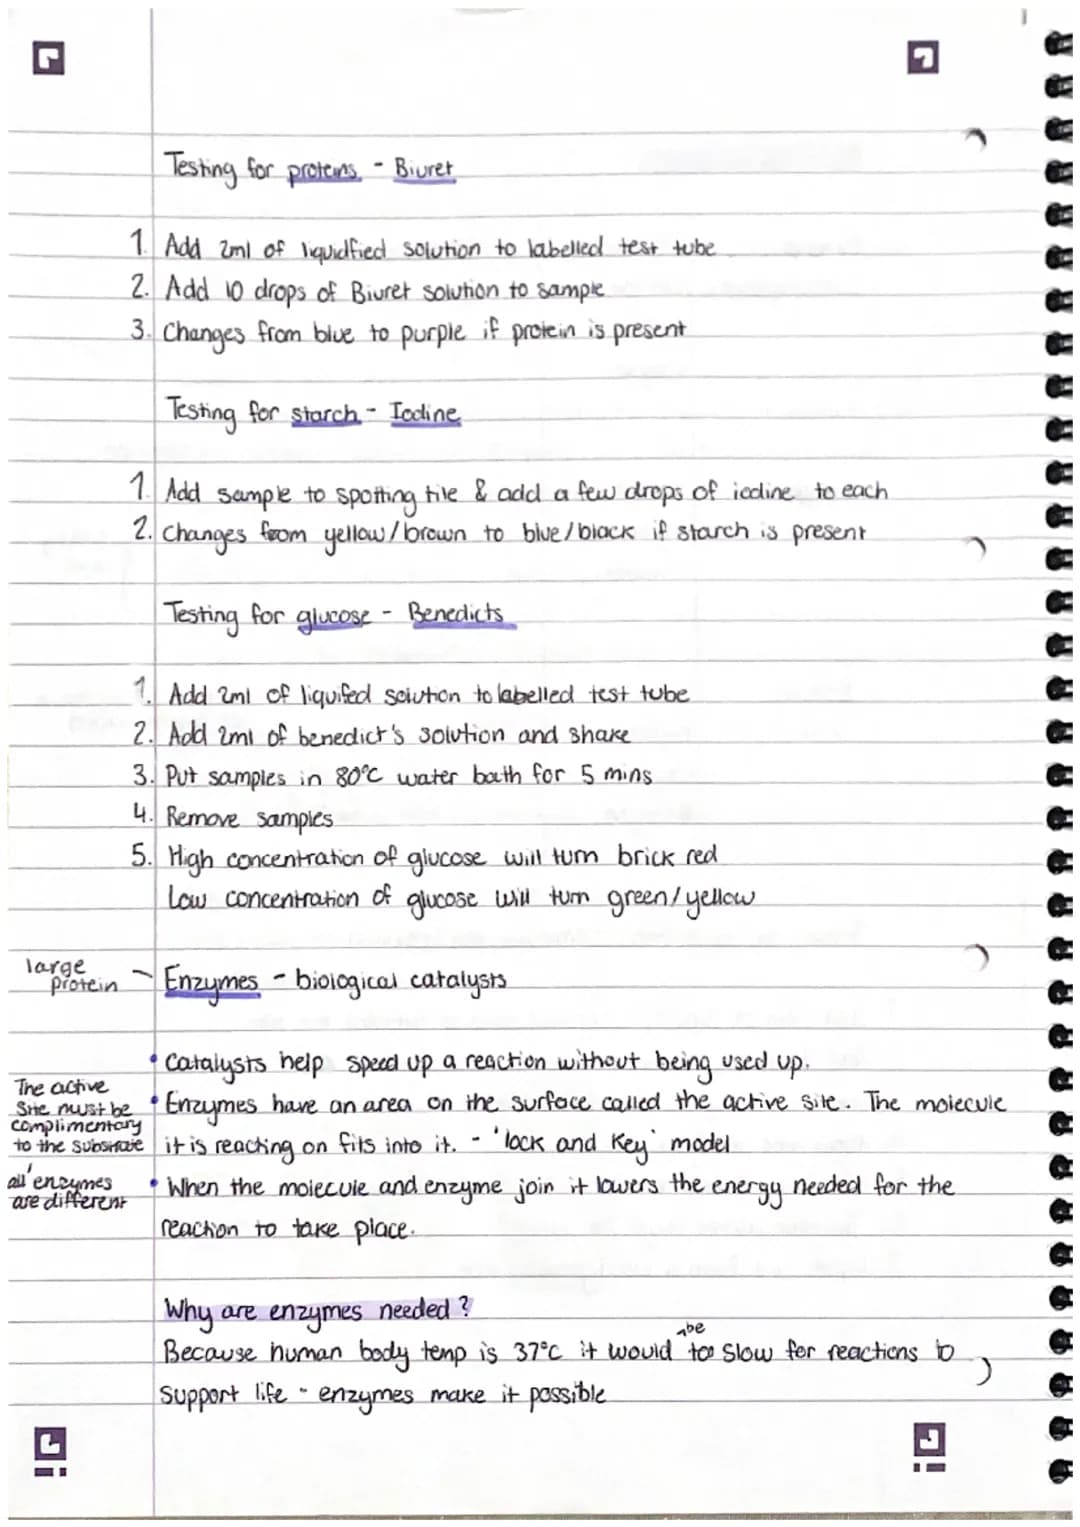 Testing for proteins - Biuret
1. Add 2ml of liquidfied solution to labelled test tube
2. Add 10 drops of Biuret solution to sample
3. Changes from blue to purple if protein is present
Testing for starch - Iodine
1. Add sample to spotting tile & add a few drops of iodine to each
2. Changes from yellow/brown to blue/black if starch is present
Testing for glucose - Benedicts
1. Add 2ml of liquifed solution to labelled test tube
2. Add 2ml of benedict's solution and shake
3. Put samples in 80°C water bath for 5 mins
4. Remove samples
5. High concentration of glucose will turn brick red
Low concentration of glucose will turn green/yellow
large
protein
Enzymes - biological catalysts
• Catalysts help speed up a reaction without being used up.
The active
Site must be
complimentary
to the substrate
all enzymes
are different
• Enzymes have an area on the surface called the active site. The molecule
it is reacting on fits into it. - 'lock and key' model
• When the molecule and enzyme join it lowers the energy needed for the
reaction to take place.
Why are enzymes needed?
be
Because human body temp is 37°C it would too slow for reactions to
support life - enzymes make it possible